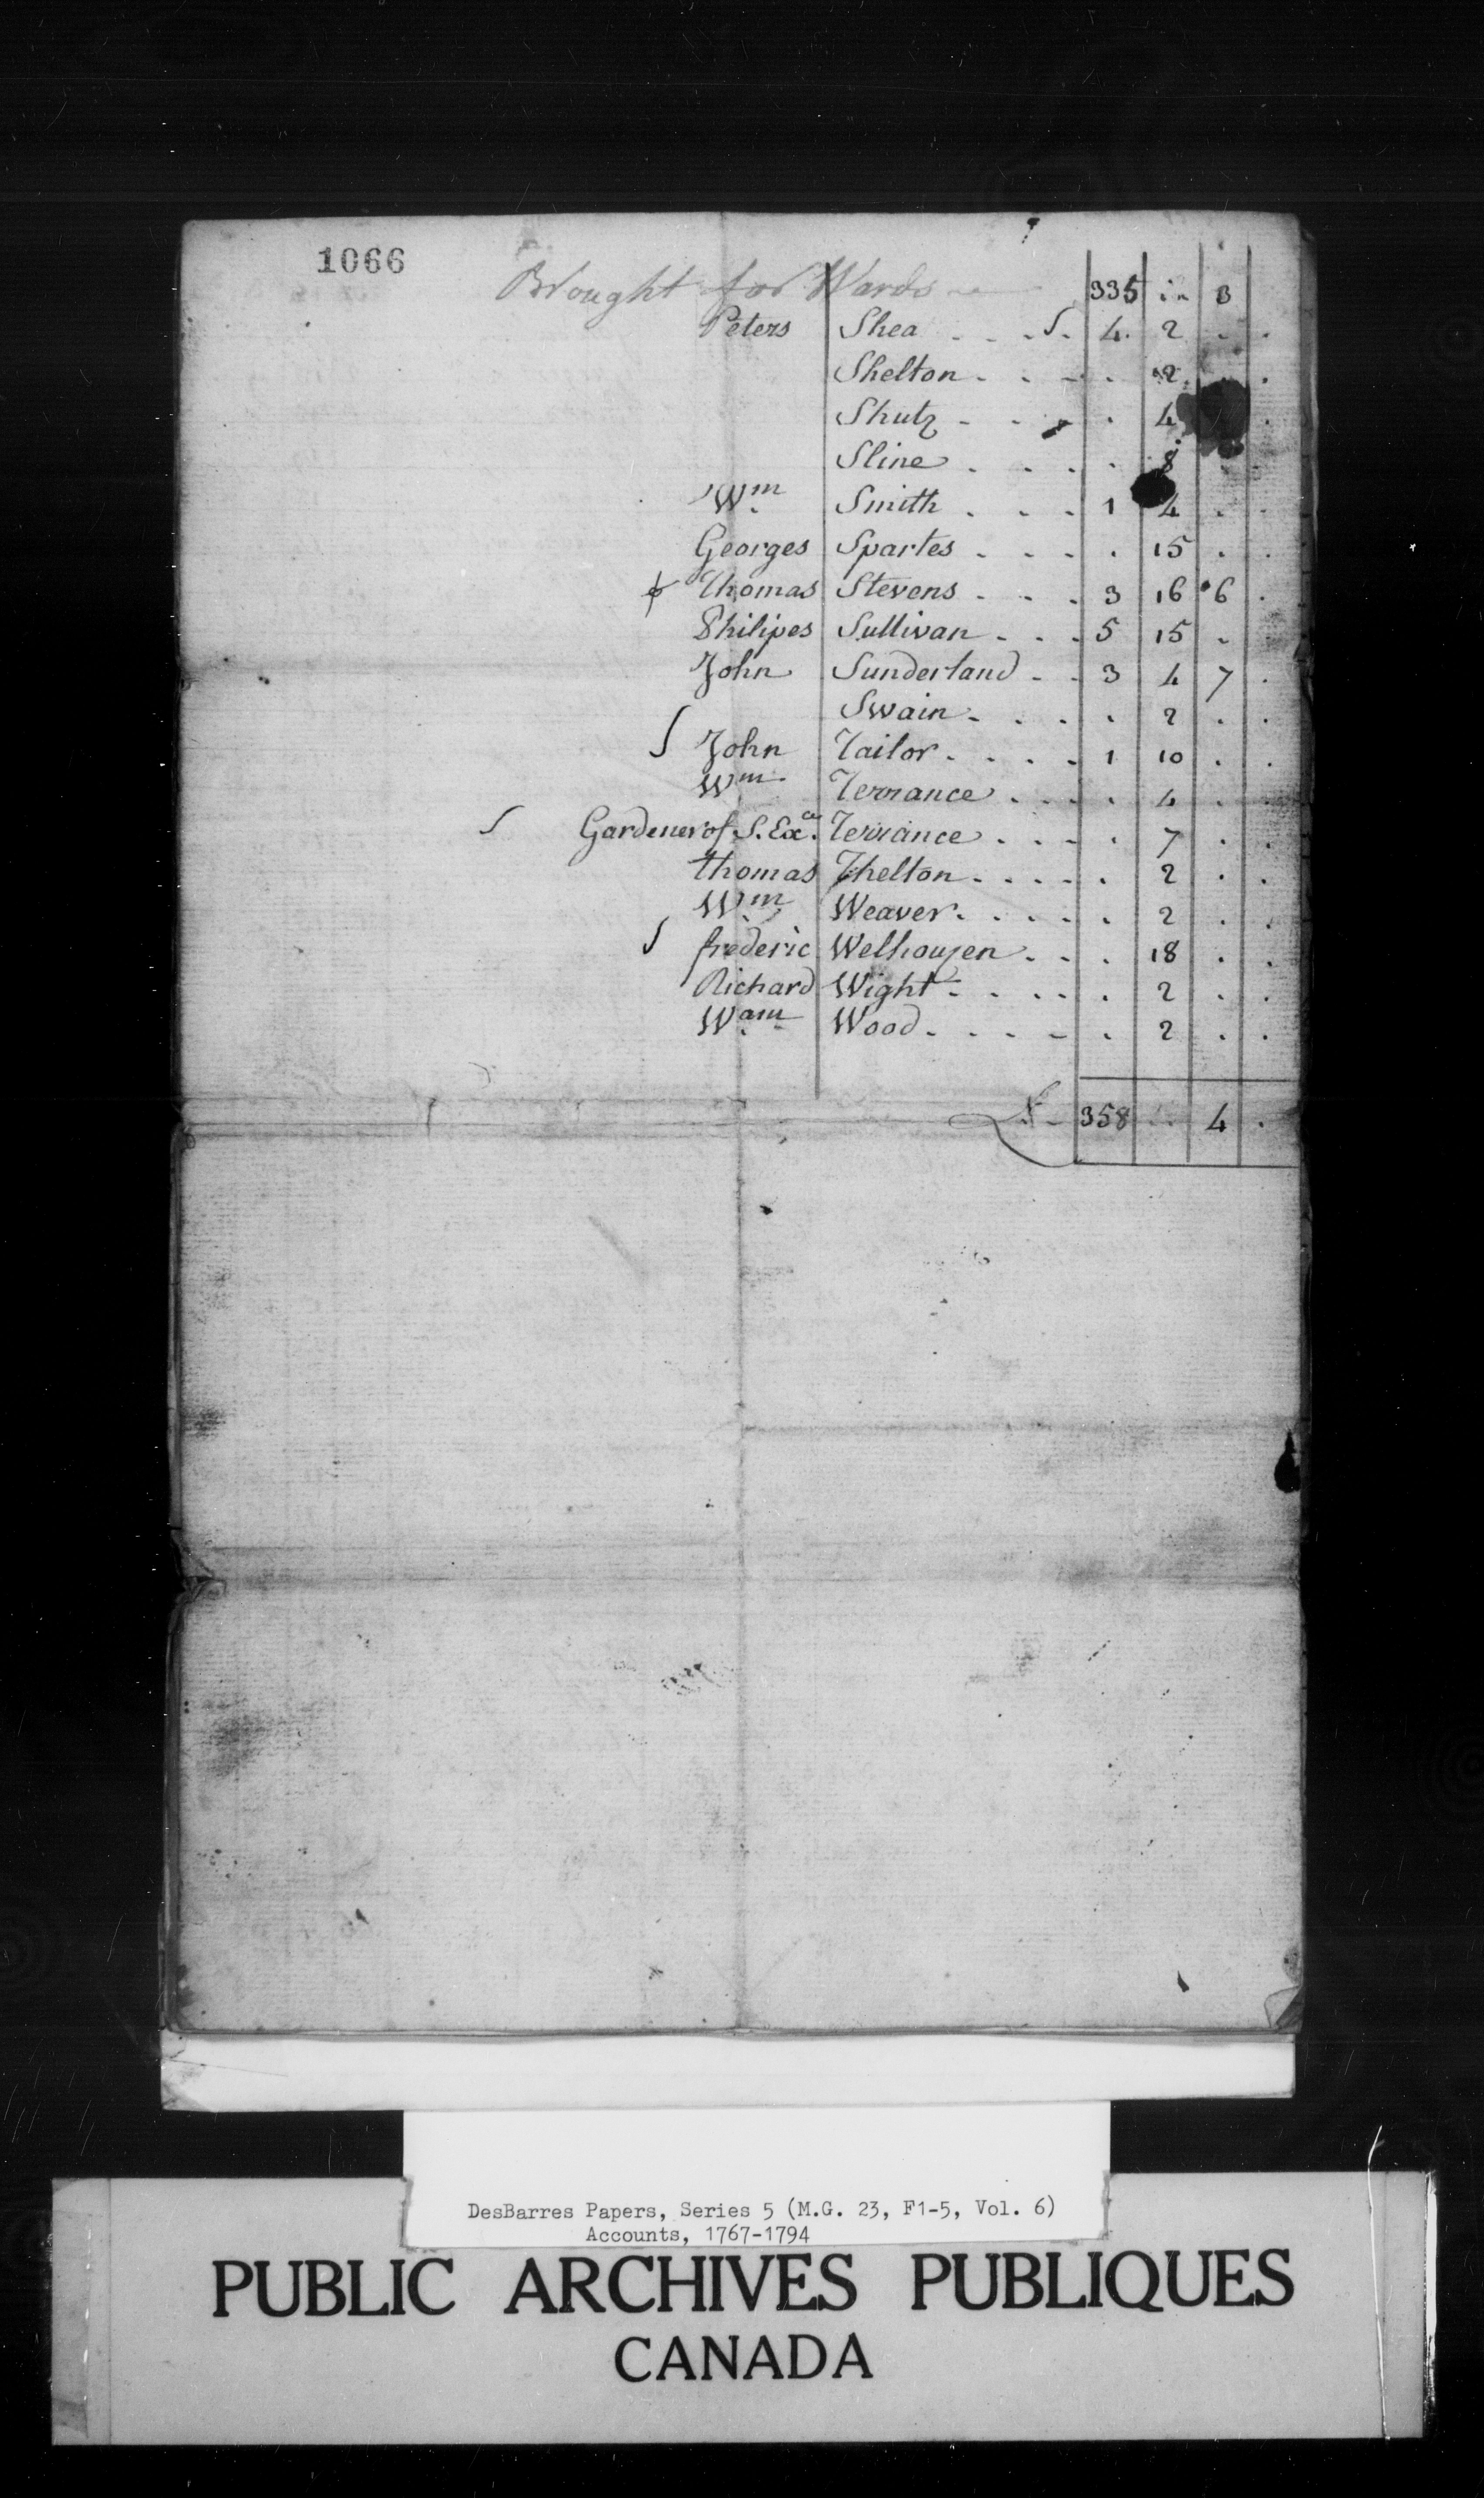 1066
Brought for Wards 335 .. 3
Peters Shea . . . S. 4. 2 . .
Shelton . . . . 2 . .
Shutz . . . . 4 .
Sline . . . . 8
Wm Smith . . . 1 4 . .
Georges Spartes . . . . 15 . .
Thomas Stevens . . . 3 16 6 .
Philipes Sullivan . . . 5 15 .
John Sunderland . . 3 4 7 .
Swain . . . . 2 . .
S John Tailor . . . . 1 10 . .
Wm Terrance . . . . 4 . .
S Gardener of S. Exce. Terrance . . . . 7 . .
thomas Thelton . . . . . 2 . .
Wm Weaver . . . . . 2 . .
S frederic Welhouzen . . . 18 . .
Richard Wight . . . . . 2 . .
Wam Wood . . . . . 2 . .
£ 358 .. 4 .
DesBarres Papers, Series 5 (M.G. 23, F1-5, Vol. 6)
Accounts, 1767-1794
PUBLIC ARCHIVES PUBLIQUES
CANADA